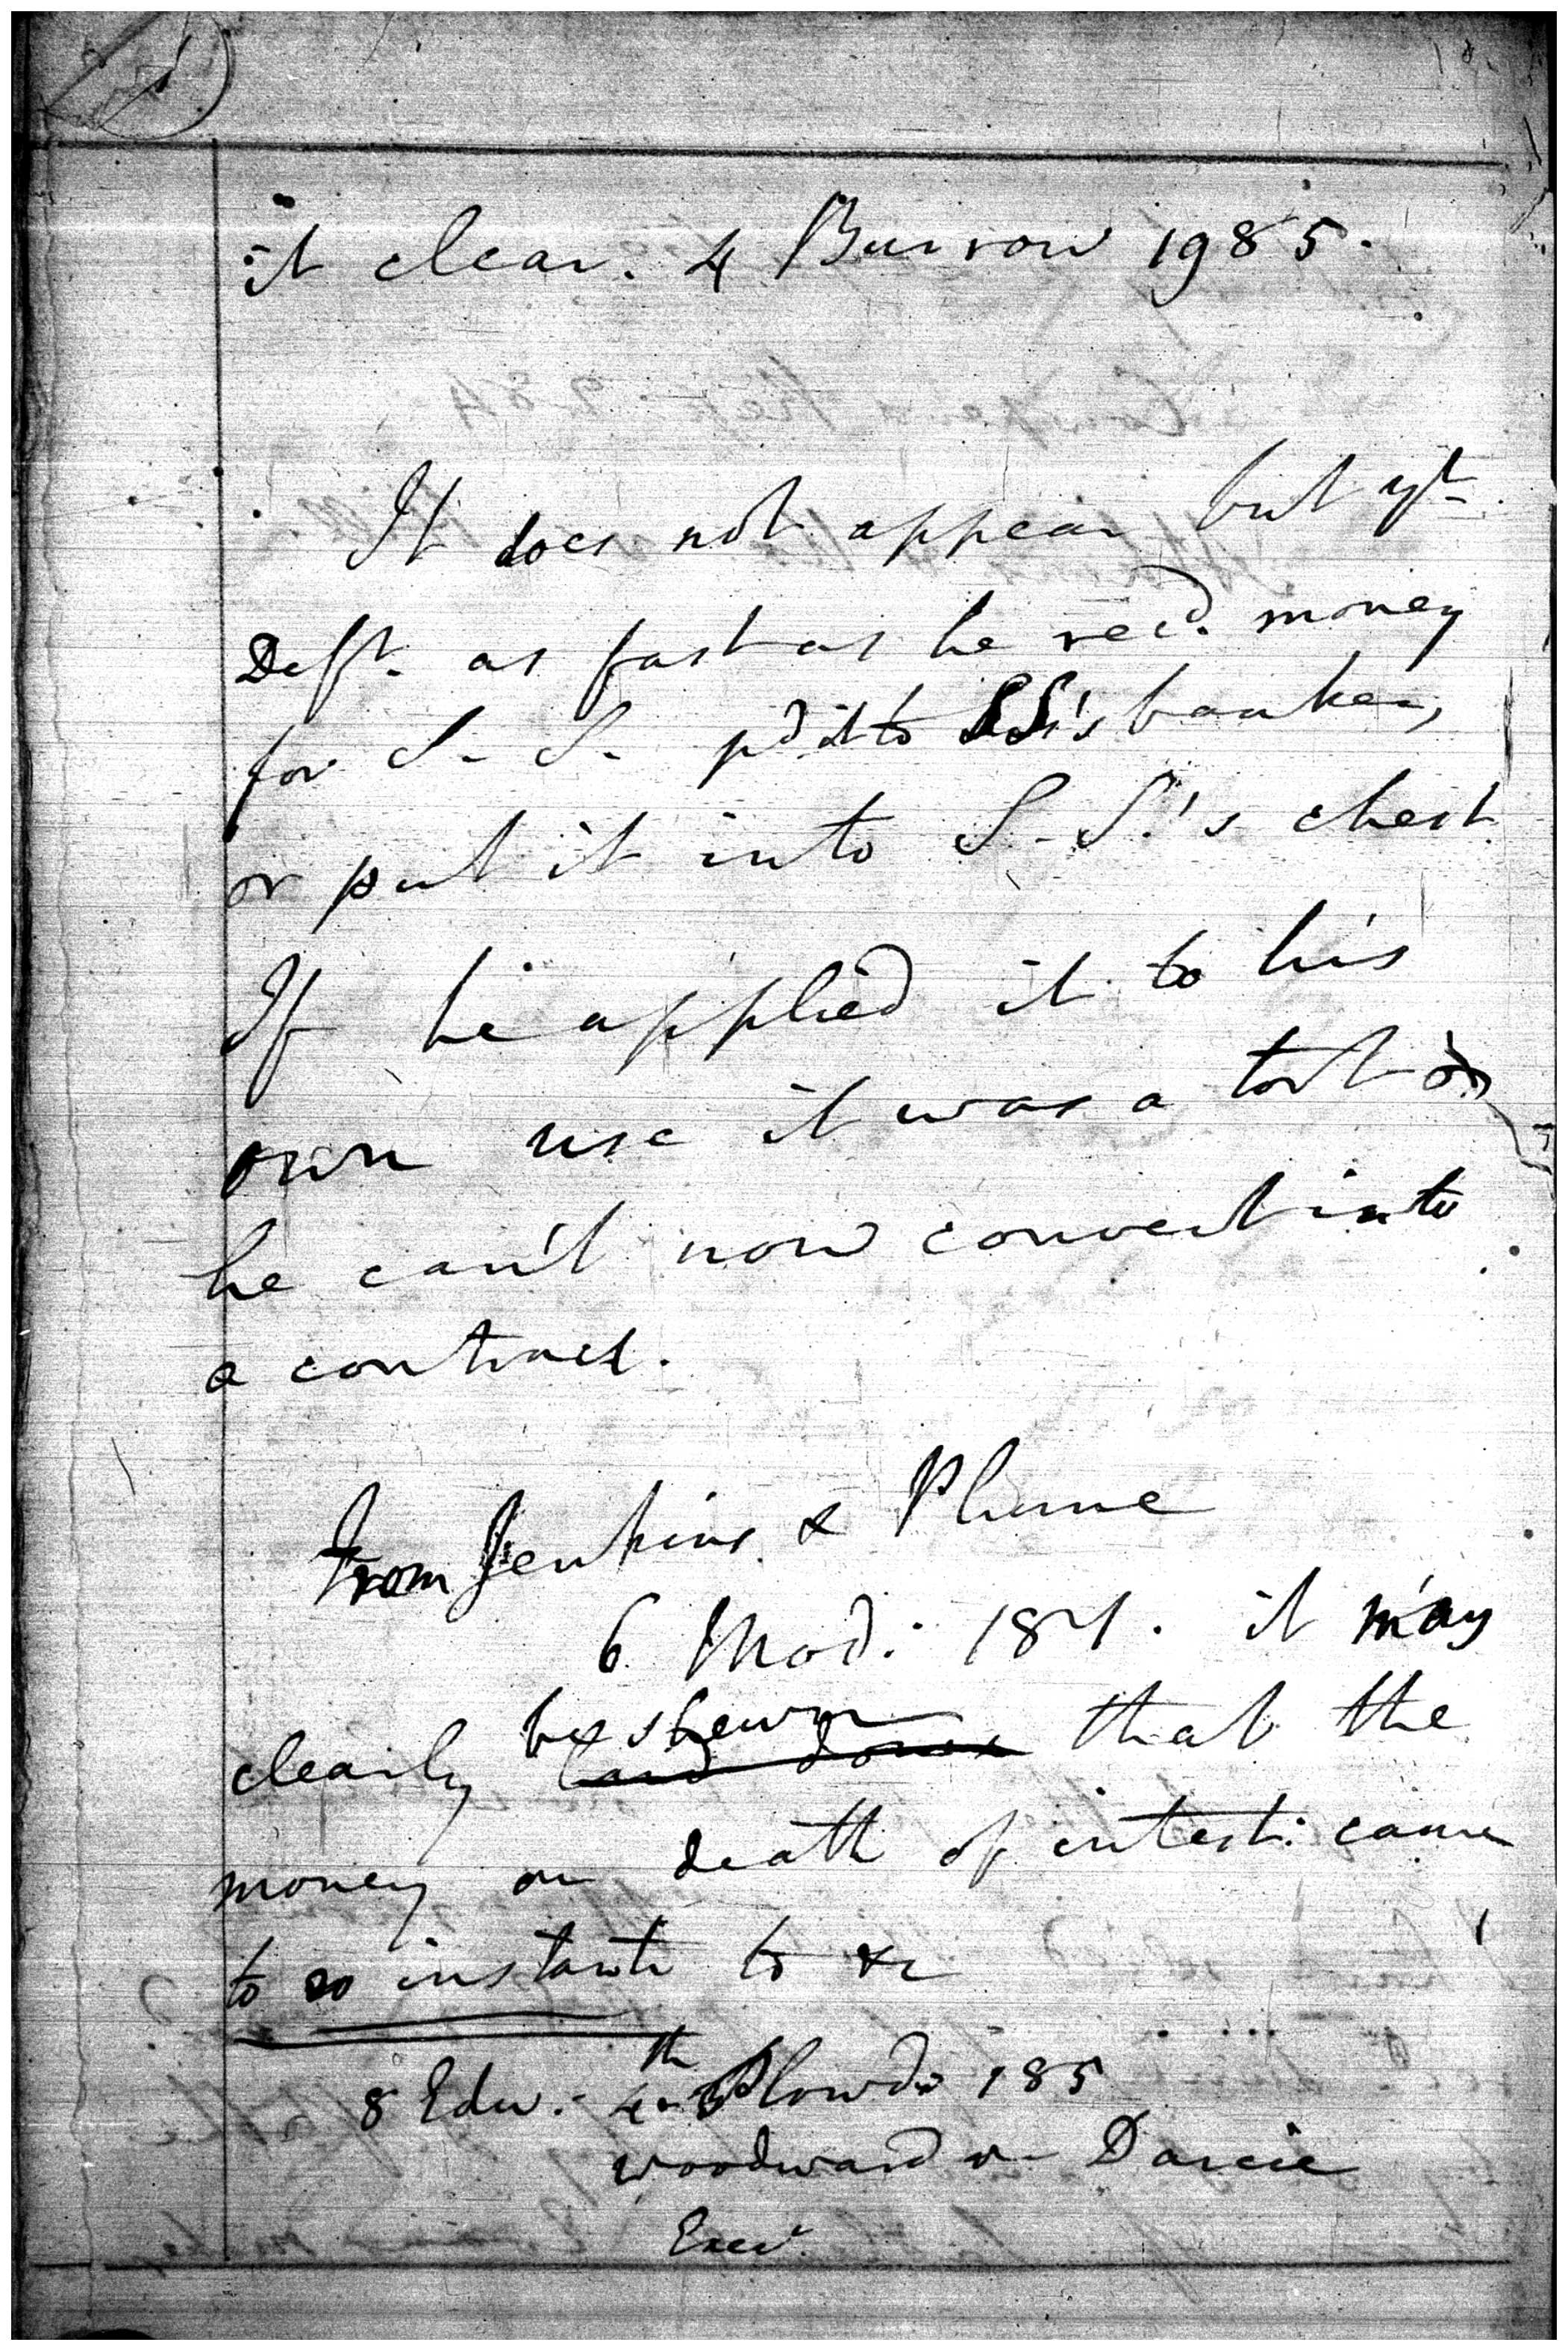 it clear. 4 Burrow 1985.
It does not appear but yt
Deft. as fast as he recd. money
for S. S. pd it to SS's banker,
or put it into S. S.'s chest
If he applied it to his
own use it was a tort &
he can't now convert into
a contract.
From Jenkins & Plume
6 Mod: 181. it may
be shewn
clearly that the
money on death of intest: came
to eo instanti to &c
8 Edw. 4th Plowd. 185
Woodward v. Darcie
Exr.